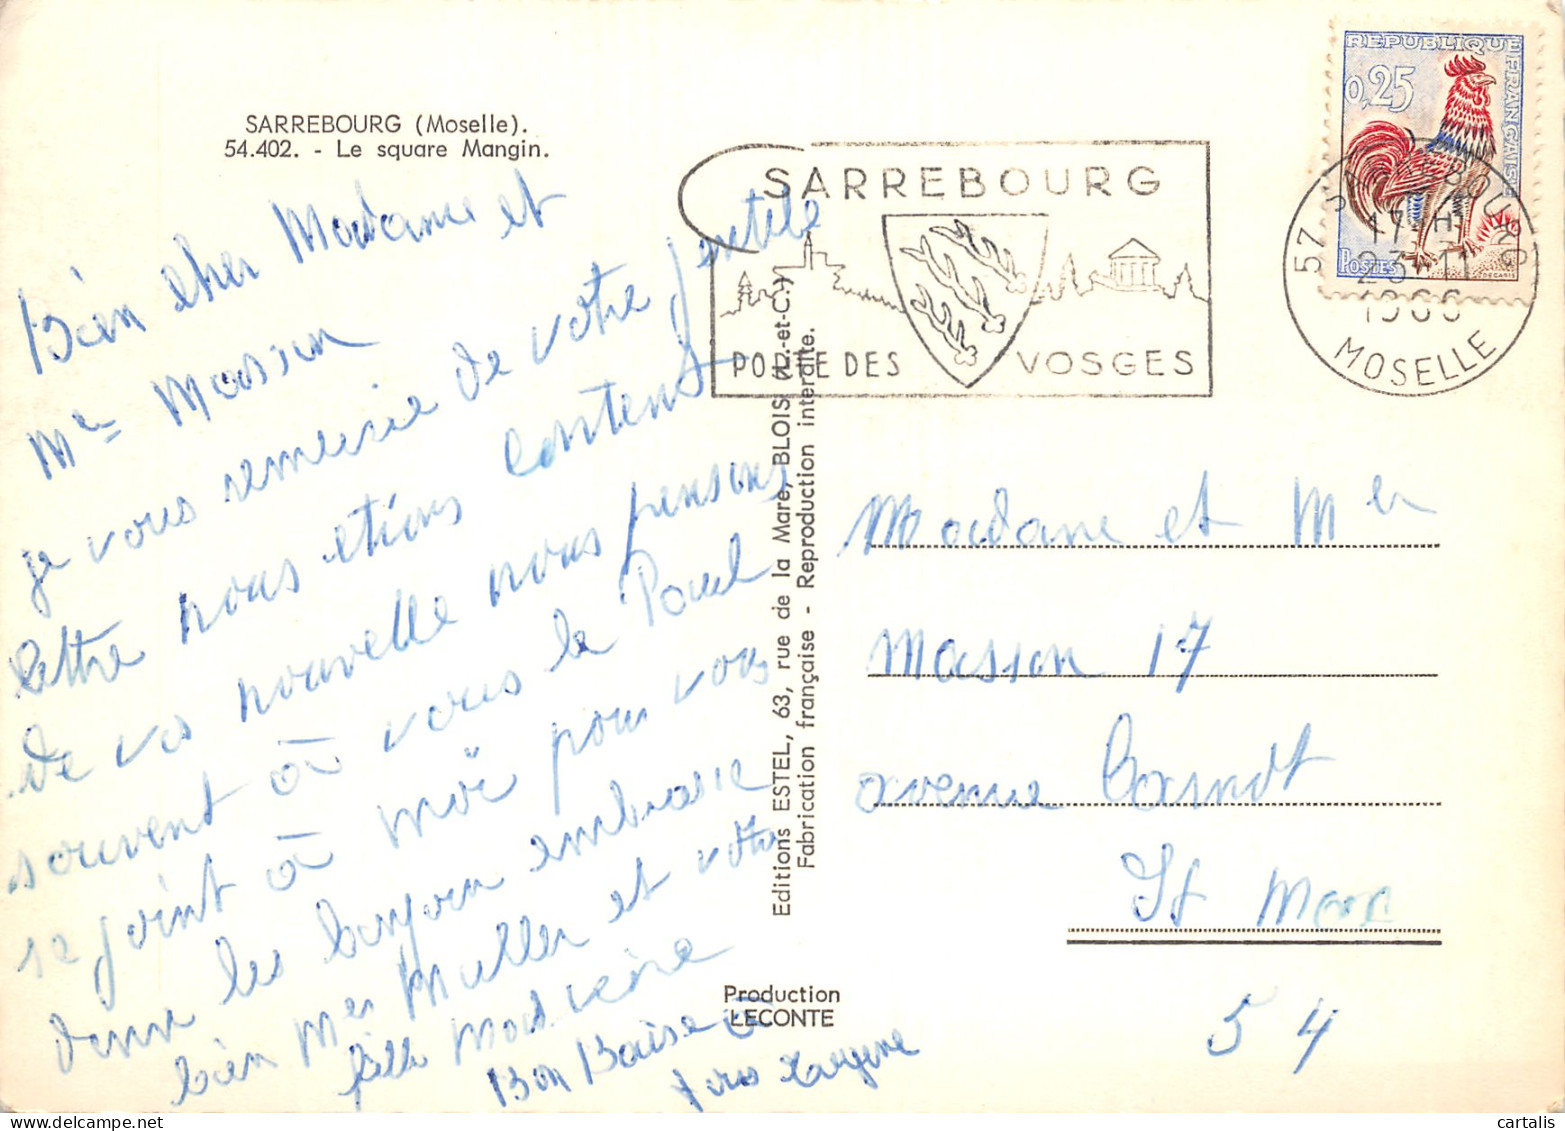 SARREBOURG (Moselle).
54.402. - Le square Mangin.
Bien cher Madame et
Mer Masson
je vous remercie de votre jentile
lettre nous etions contents
de vos nouvelle nous pensons
souvent a vous le Paul
se joint a moi pour vous
dire les bonjour embrasse
bien Mer Muller et votre
fille
Bon Baise a
REPUBLIQUE FRANÇAISE
0,25
POSTES
DECARIS
SARREBOURG
PORTE DES VOSGES
57 SARREBOURG
17 H
23-11
1966
MOSELLE
Editions ESTEL, 63, rue de la Mare, BLOIS (L.-et-C.)
Fabrication française - Reproduction interdite.
Production
LECONTE
Madame et Mer
Masson 17
avenue Carnot
St
54
cartalis
www.delcampe.net